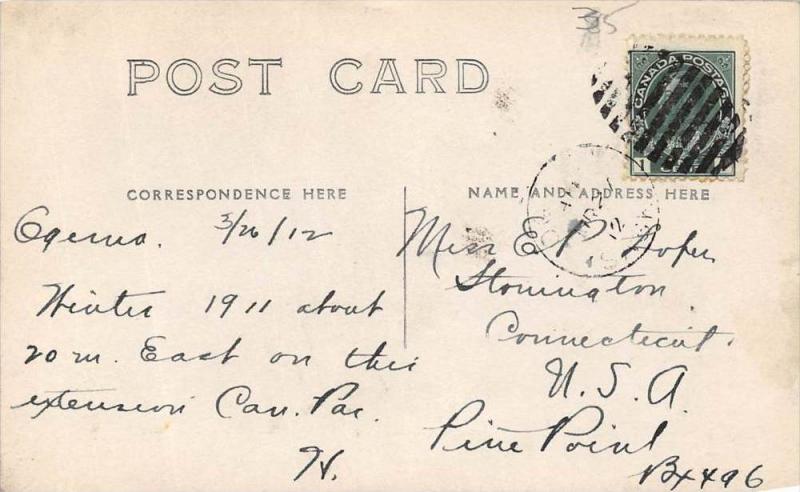 35
POST CARD
CANADA POSTAGE
1
CORRESPONDENCE HERE
NAME AND ADDRESS HERE
Ogema. 3/26/12
Winter 1911 about
20 m. East on this
extension Can. Pac.
H.
Miss E P Loper
Stonington
Connecticut
U. S. A.
Pine Point
Bx 496